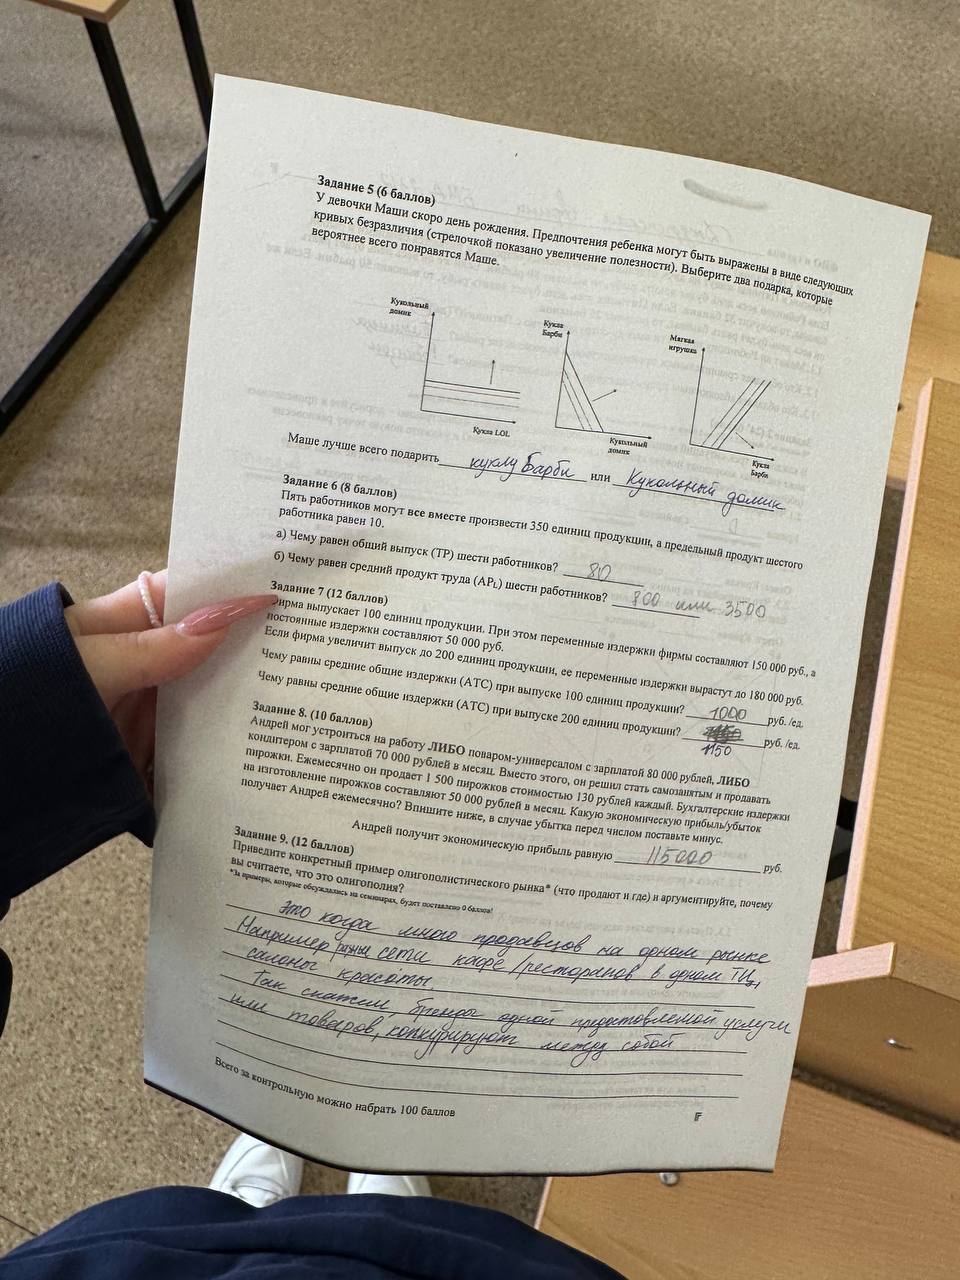 Задание 5 (6 баллов)
У девочки Маши скоро день рождения. Предпочтения ребенка могут быть выражены в виде следующих
кривых безразличия (стрелочкой показано увеличение полезности). Выберите два подарка, которые
вероятнее всего понравятся Маше.
Кукольный
домик
Кукла LOL
Кукла
Барби
Кукольный
домик
Мягкая
игрушка
Кукла
Барби
Маше лучше всего подарить куклу Барби или Кукольный домик
Задание 6 (8 баллов)
Пять работников могут все вместе произвести 350 единиц продукции, а предельный продукт шестого
работника равен 10.
а) Чему равен общий выпуск (TP) шести работников? 80
б) Чему равен средний продукт труда (APL) шести работников? 800 или 3500
Задание 7 (12 баллов)
Фирма выпускает 100 единиц продукции. При этом переменные издержки фирмы составляют 150 000 руб., а
постоянные издержки составляют 50 000 руб.
Если фирма увеличит выпуск до 200 единиц продукции, ее переменные издержки вырастут до 180 000 руб.
Чему равны средние общие издержки (АТС) при выпуске 100 единиц продукции? 1000 руб. /ед.
Чему равны средние общие издержки (АТС) при выпуске 200 единиц продукции? руб. /ед.
1150
Задание 8. (10 баллов)
Андрей мог устроиться на работу ЛИБО поваром-универсалом с зарплатой 80 000 рублей, ЛИБО
кондитером с зарплатой 70 000 рублей в месяц. Вместо этого, он решил стать самозанятым и продавать
пирожки. Ежемесячно он продает 1 500 пирожков стоимостью 130 рублей каждый. Бухгалтерские издержки
на изготовление пирожков составляют 50 000 рублей в месяц. Какую экономическую прибыль/убыток
получает Андрей ежемесячно? Впишите ниже, в случае убытка перед числом поставьте минус.
Андрей получит экономическую прибыль равную 115000 руб.
Задание 9. (12 баллов)
Приведите конкретный пример олигополистического рынка* (что продают и где) и аргументируйте, почему
вы считаете, что это олигополия?
*За примеры, которые обсуждались на семинарах, будет поставлено 0 баллов!
Это когда много продавцов на одном рынке
Например разные сети кафе/ресторанов в одном ТЦ,
салоны красоты.
Так скажем, бренды одной предоставляемой услуги
или товаров, конкурируют между собой
Всего за контрольную можно набрать 100 баллов
F